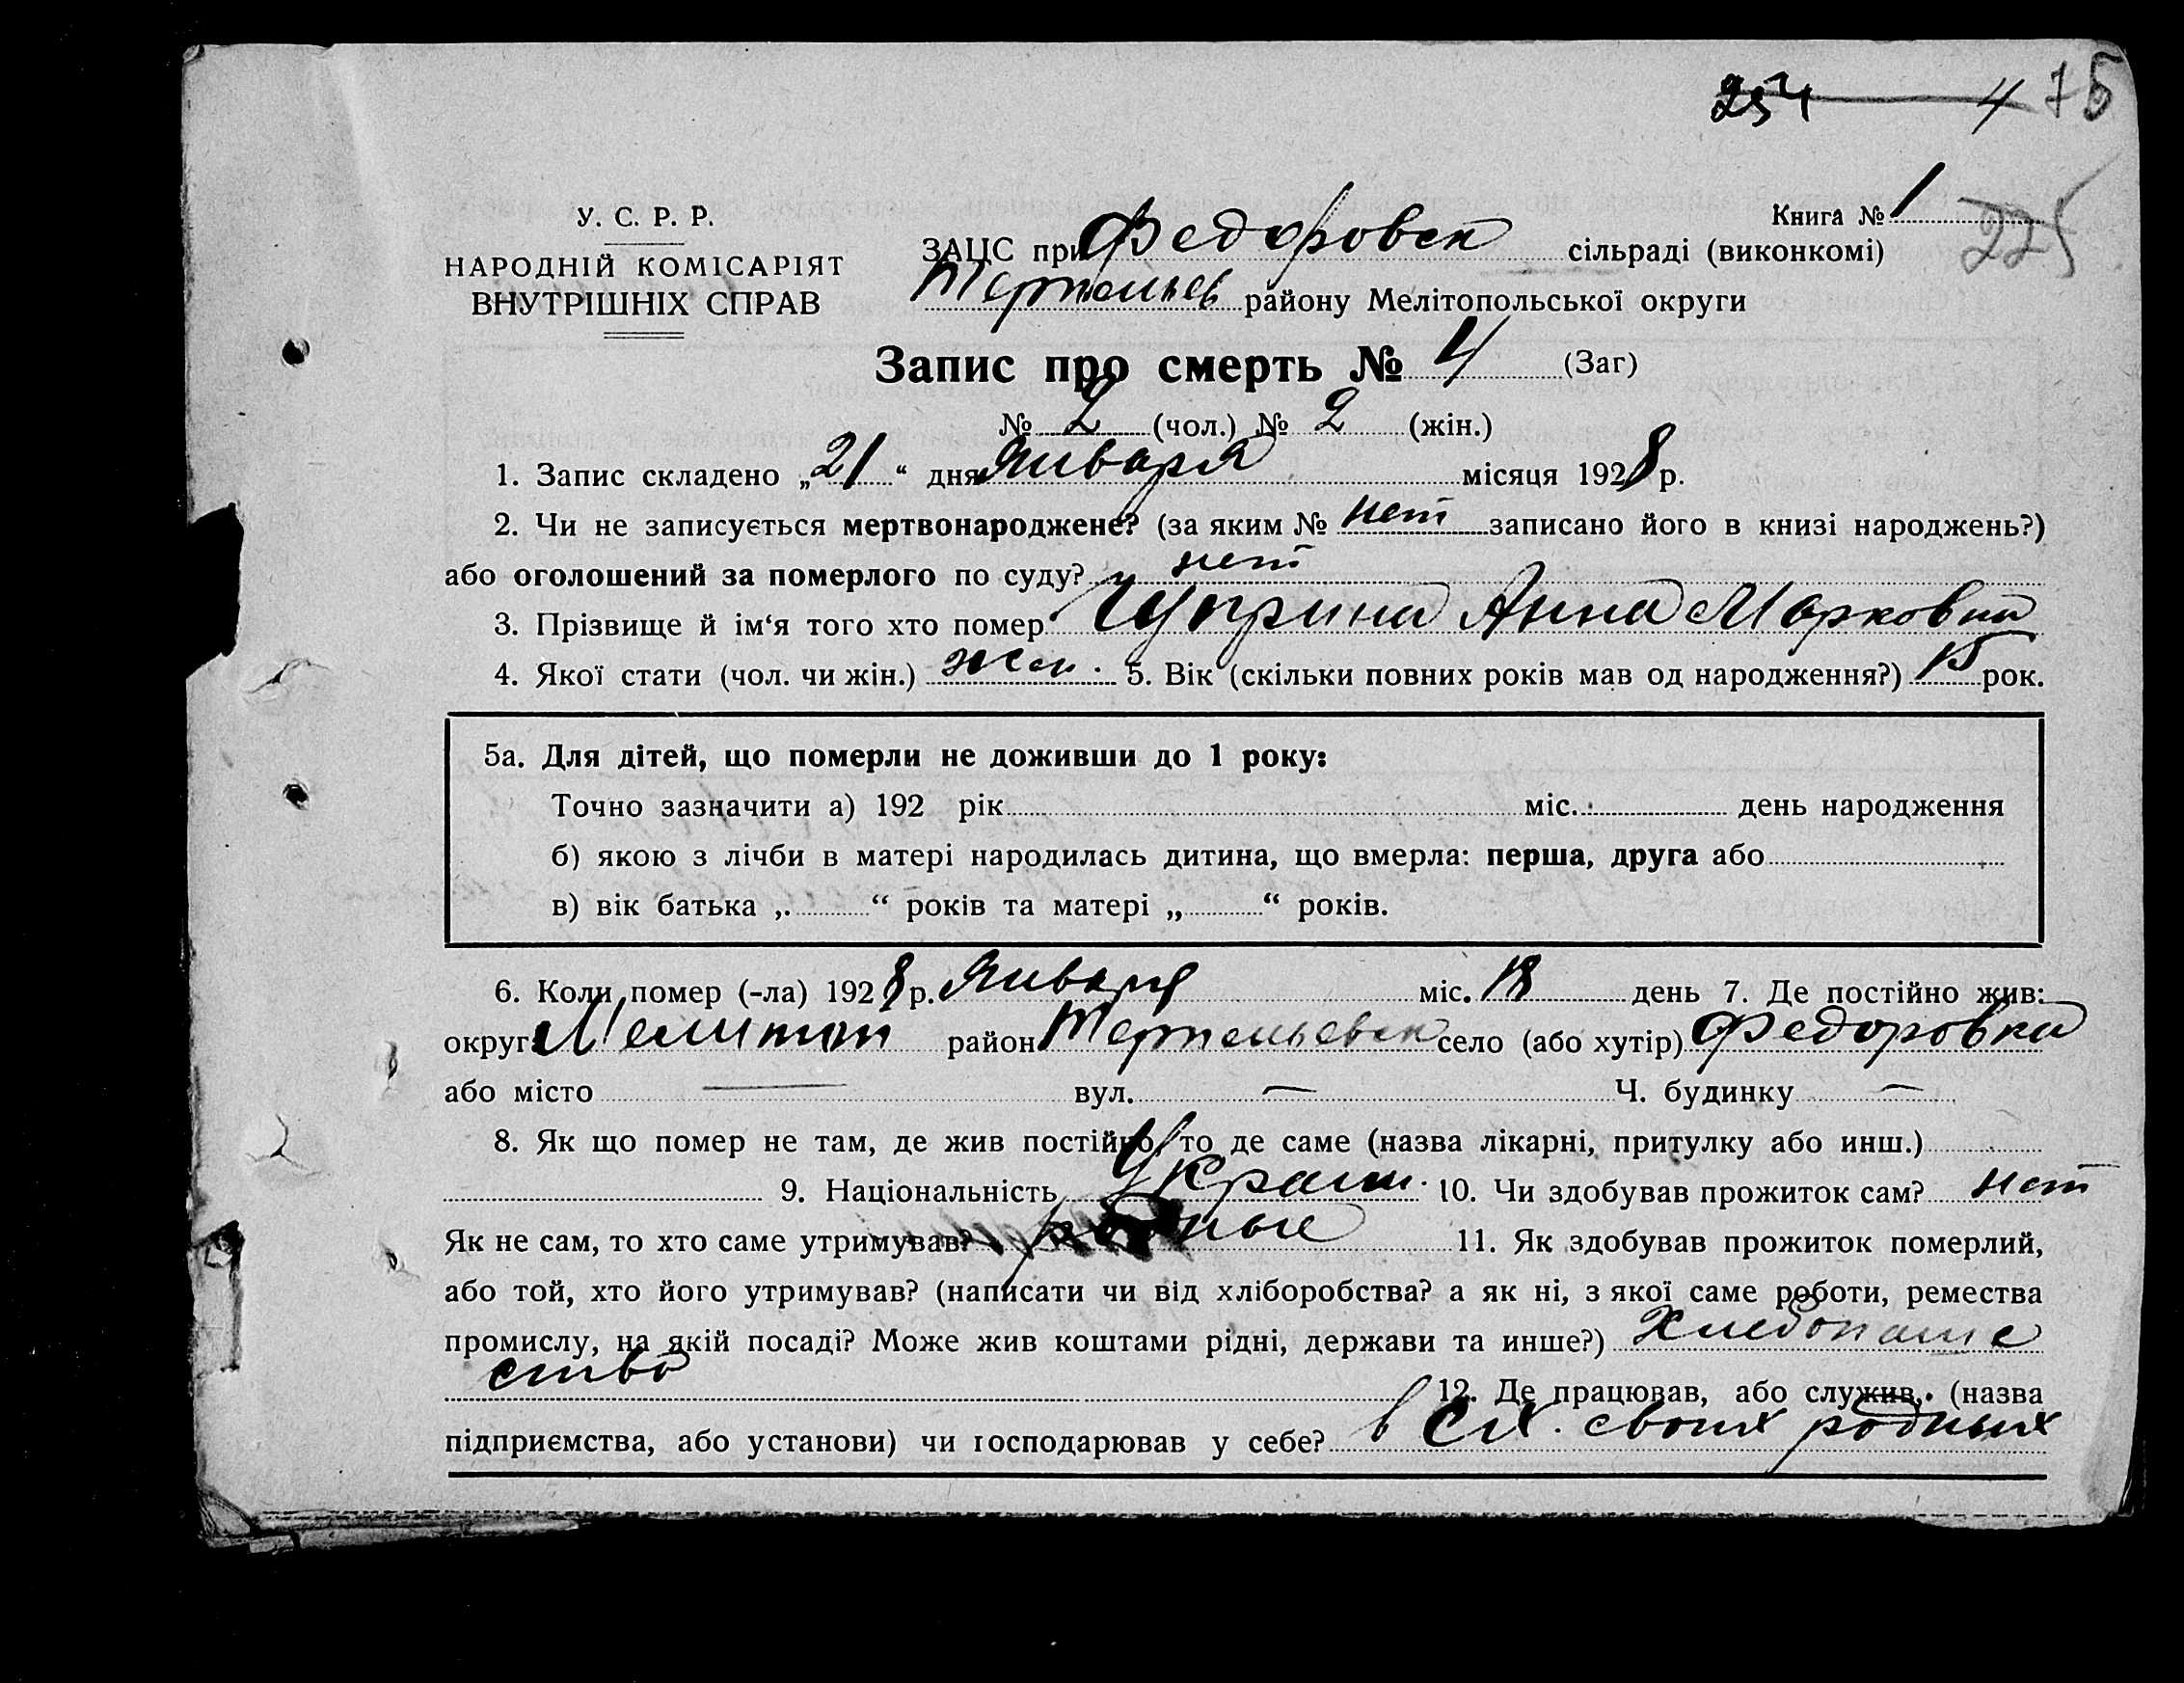 254 4 75
Книга № 1
225
У. С. Р. Р.
НАРОДНІЙ КОМІСАРІЯТ
ВНУТРІШНІХ СПРАВ
ЗАЦС при Федоровск сільраді (виконкомі)
району Мелітопольської округи
Запис про смерть № 4 (Заг)
№ 2 (чол.) № 2 (жін.)
1. Запис складено „21“ дня Января місяця 1928 р.
2. Чи не записується мертвонароджене? (за яким № нет записано його в книзі народжень?)
або оголошений за померлого по суду? нет
3. Прізвище й ім‘я того хто помер Чуприна Анна Марковна
4. Якої стати (чол. чи жін.) жен. 5. Вік (скільки повних років мав од народження?) 15 рок.
5а. Для дітей, що померли не доживши до 1 року:
Точно зазначити а) 192 рік міс. день народження
б) якою з лічби в матері народилась дитина, що вмерла: перша, друга або
в) вік батька „ “ років та матері „ “ років.
6. Коли помер (-ла) 1928 р. Января міс. 18 день 7. Де постійно жив:
округ Мелитоп район село (або хутір) Федоровка
або місто — вул. — Ч. будинку —
8. Як що помер не там, де жив постійно, то де саме (назва лікарні, притулку або инш.)
9. Національність Украин. 10. Чи здобував прожиток сам? нет
Як не сам, то хто саме утримував? родные 11. Як здобував прожиток померлий,
або той, хто його утримував? (написати чи від хліборобства? а як ні, з якої саме роботи, ремества
промислу, на якій посаді? Може жив коштами рідні, держави та инше?) Хлебопаше
ство
12. Де працював, або служив, (назва
підприємства, або установи) чи господарював у себе? в с.х. своих родных